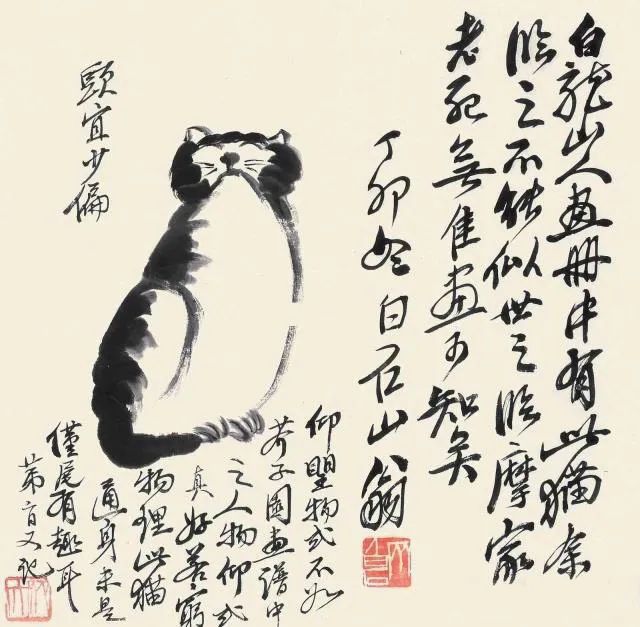 白龍山人畫冊中有此猫余
臨之不能似世之臨摩家
老死無佳畫可知矣
丁卯冬白石山翁
頭宜少偏
仰望物式不如
芥子園畫譜中
之人物仰式
真好若窮
物理此猫
通身未是
僅尾有趣耳
又記